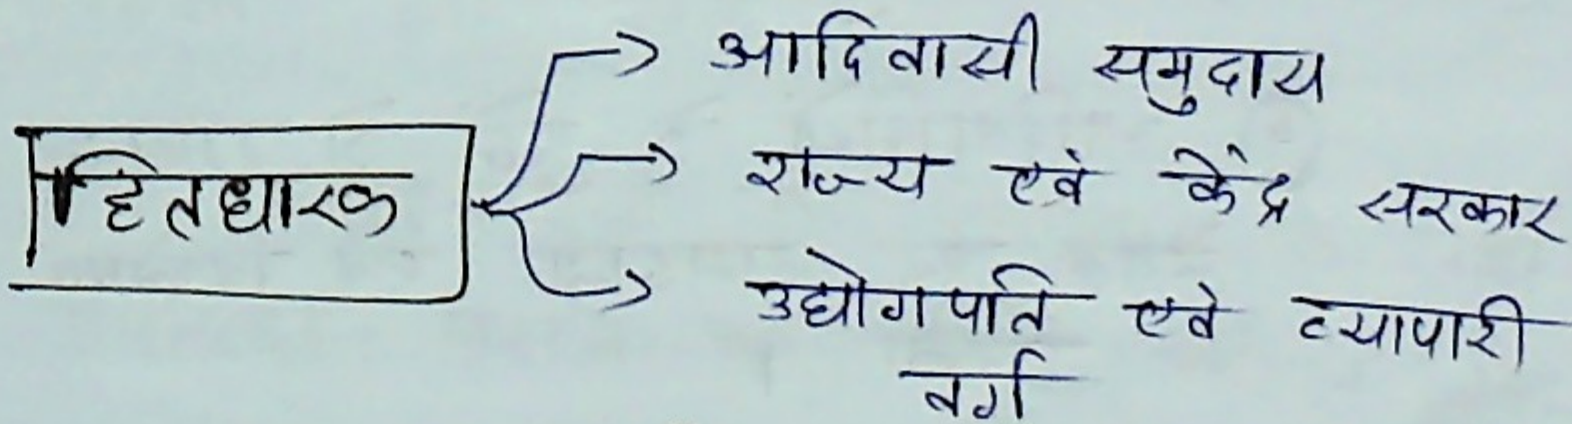 हितधारक
आदिवासी समुदाय
राज्य एवं केंद्र सरकार
उद्योगपति एवं व्यापारी
वर्ग